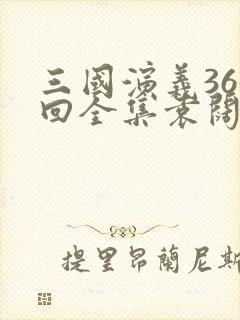 三國演義36
回全集袁闊
提里昂蘭尼斯